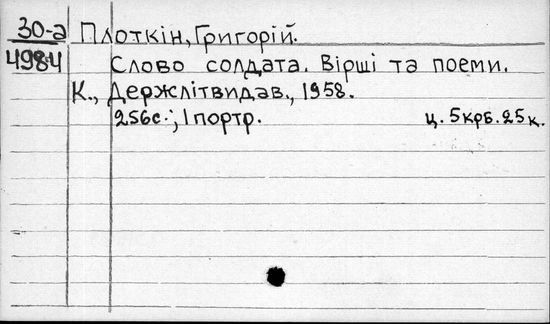 30-а Плоткін, Григорій.
4984 Слово солдата. Вірші та поеми.
К., Держлітвидав., 1958.
256с.; 1 портр. ц. 5крб. 25к.